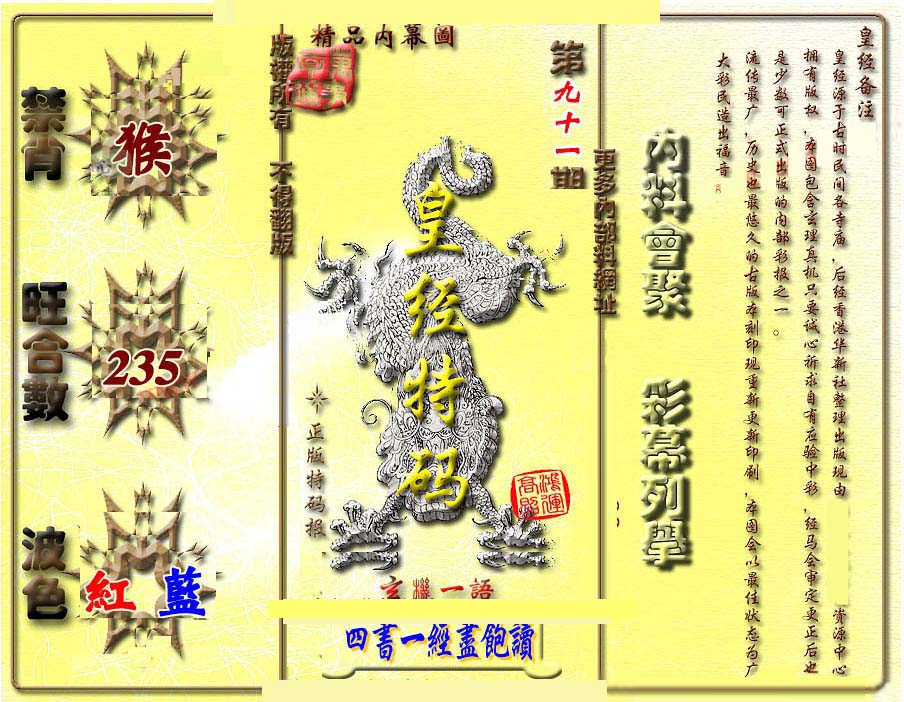 精品内幕圖
第九十一期
版權所有 不得翻版
更多內部料網址
皇经特码
正版特码报
鴻運高照
玄機一語
四書一經盡飽讀
禁肖
猴
旺合數
235
波色
紅 藍
內料會聚
彩幕列舉
皇经备注
皇经源于古时民间各寺庙,后经香港华新社整理出版现由 资源中心
拥有版权,本图包含玄理真机只要诚心祈求自有应验中彩,经马会审定更正后也
是少数可正式出版的内部彩报之一。
流传最广,历史也最悠久的古版本刻印现重新更新印刷,本图会以最佳状态为广
大彩民造出福音